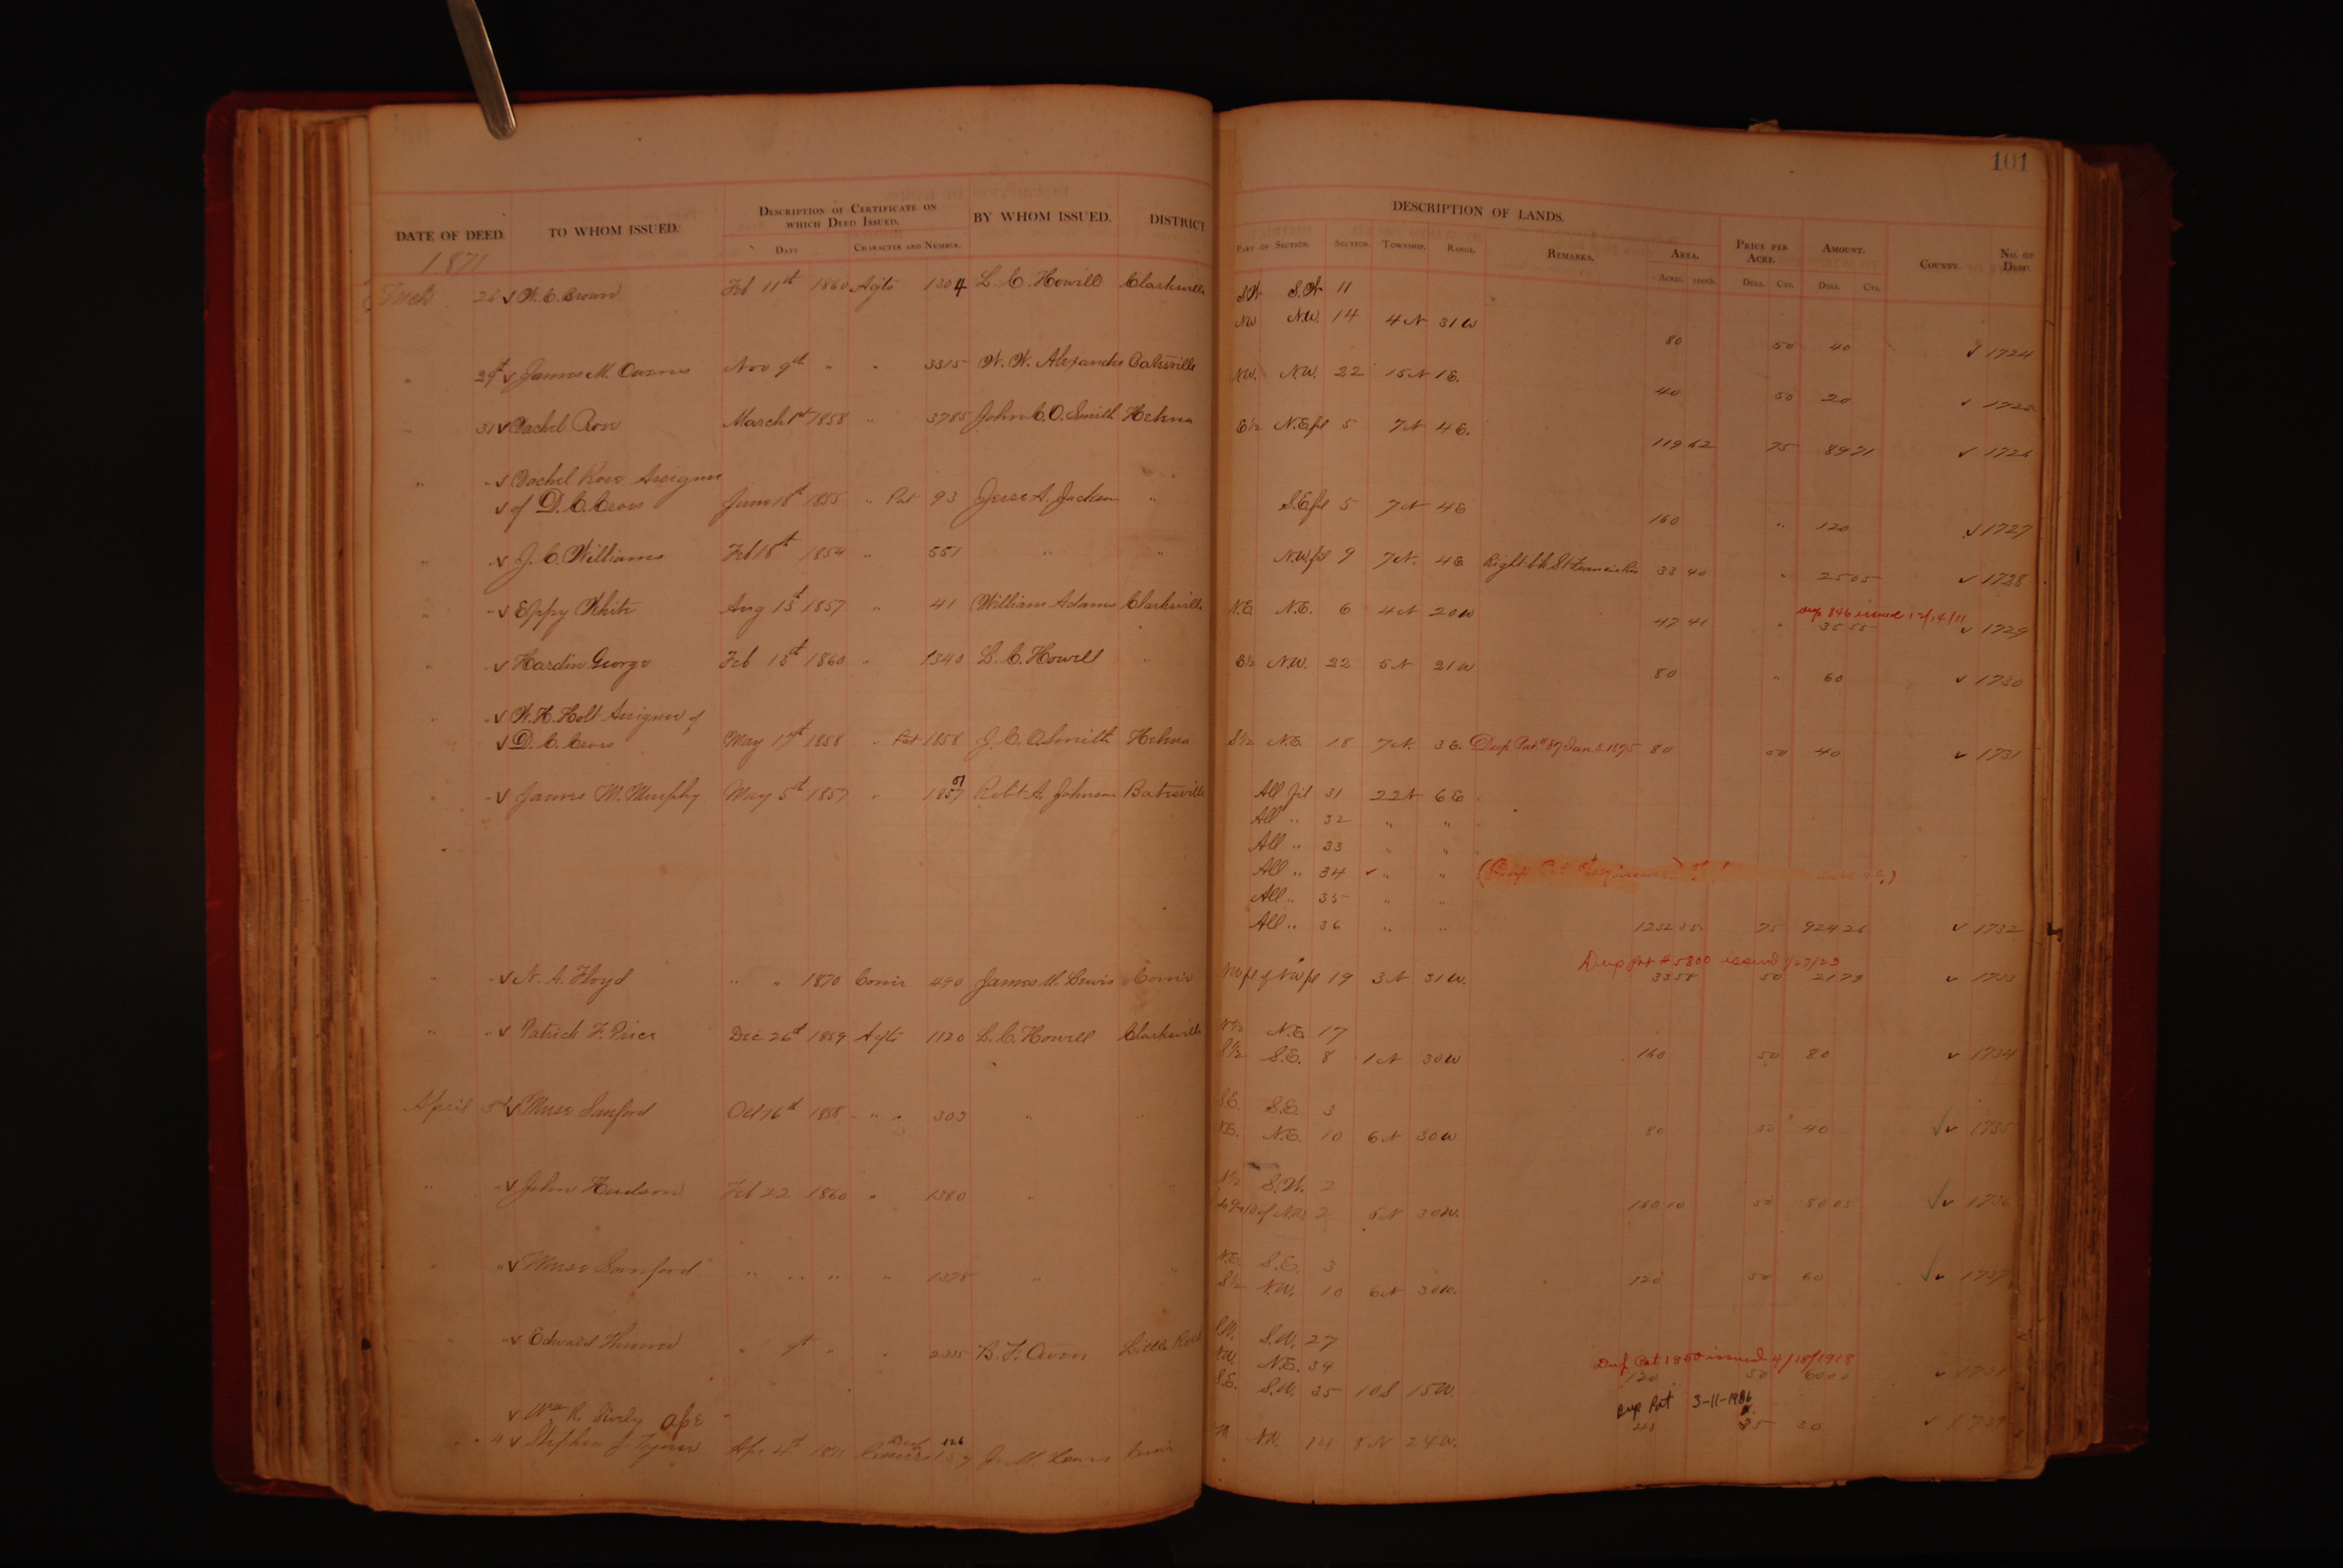 101
DESCRIPTION OF LANDS.
DATE OF DEED. TO WHOM ISSUED. DESCRIPTION OF CERTIFICATE ON WHICH DEED ISSUED. BY WHOM ISSUED. DISTRICT PART OF SECTION. SECTION. TOWNSHIP. RANGE. REMARKS. AREA. PRICE PER ACRE. AMOUNT. COUNTY NO. OF DEED
DATE CHARACTER AND NUMBER. ACRES. 100TH. DOLS. CTS. DOLS. CTS.
1871
26 ✓ W. C. Brown Feb 11th 1860 Agts 1304 L. C. Howell Clarksville SW S.W 11
NW N.W. 14 4N 31W 80 50 40 ✓ 1724
" 29th ✓ James M. Owens Nov 9th " " 3315 W. W. Alexander Batesville NW. N.W. 22 15N 1E. 40 50 20 ✓ 1725
" 31 ✓ Rachel Row March 1st 1858 " 3785 John C. O. Smith Helena E½ N.E.fl 5 7N 4E. 119 62 75 89 71 ✓ 1726
" " ✓ Rachel Row Assignee
✓ of D. C. Cross June 18th 1855 " Pat 93 Jesse A. Jackson " S.E.fl 5 7N 4E 160 " 120 ✓ 1727
" " ✓ J. C. Williams Feb 18th 1854 " 551 " " N.W.fl 9 7N. 4E Right bk St Francis Riv 33 40 " 25 05 ✓ 1728
" " ✓ Eppy White Aug 13th 1857 " 41 William Adams Clarksville N.E. N.E. 6 4N 20W 47 41 " Dup 846 issued 12/14/11 35 55 ✓ 1729
" " ✓ Hardin George Feb 15th 1860 " 1340 L. C. Howell " E½ N.W. 22 5N 21W 80 " 60 ✓ 1730
" " ✓ W. H. Holt Assignee of
✓ D. C. Cross May 17th 1858 " Pat 1858 J. C. O. Smith Helena S½ N.E. 18 7N. 3E. Dup Pat # 87 Jan. 8. 1895 80 50 40 ✓ 1731
" " ✓ James M. Murphy May 5th 1857 " 1857 51 Robt A. Johnson Batesville All fl 31 22N 6E
All " 32 " "
All " 33 " "
All " 34 ✓ " " (Dup Pat
All " 35 " "
All " 36 " " 1232 35 75 924 26 ✓ 1732
" " ✓ N. A. Floyd " " 1870 Comr 490 James M. Lewis Comr NW fl of NW fl 19 3N 31W. Dup Pat # 5800 issued 1/27/29 33 58 50 21 79 ✓ 1733
" " ✓ Patrick F. Price Dec 26th 1859 Agts 1120 L. C. Howell Clarksville N½ N.E. 17
S½ S.E. 8 1N 30W 160 50 80 ✓ 1734
April 3d ✓ Muse Sanford Oct 16th 1858 " " 303 " " S.E. S.E. 3
N.E. N.E. 10 6N 30W 80 50 40 ✓✓ 1735
" " ✓ John Hudson Feb 22 1860 " 1380 " " N½ S.W. 2
of N.W. 2 5N 30W. 160 10 50 80 05 ✓✓ 1736
" " ✓ Muse Sanford " " " " 1378 " " N.E. S.E. 3
S½ N.W. 10 6N 30W. 120 50 60 ✓✓ 1737
" " ✓ Edward " " " 2335 B. F. Owen Little Rock S.W. S.W. 27
N.W. N.E. 34 Dup Pat 1850 issued 4/18/1918
S.E. S.W. 35 10S 15W. 120 50 60 00 ✓ 1738
✓ Wm R. Sively Dup Pat 3-11-1986
" 4 ✓ Stephen J. Apr 4th 1871 126 J. M. Lewis Comr N.W. 14 8N 24W. 30 ✓ 1739